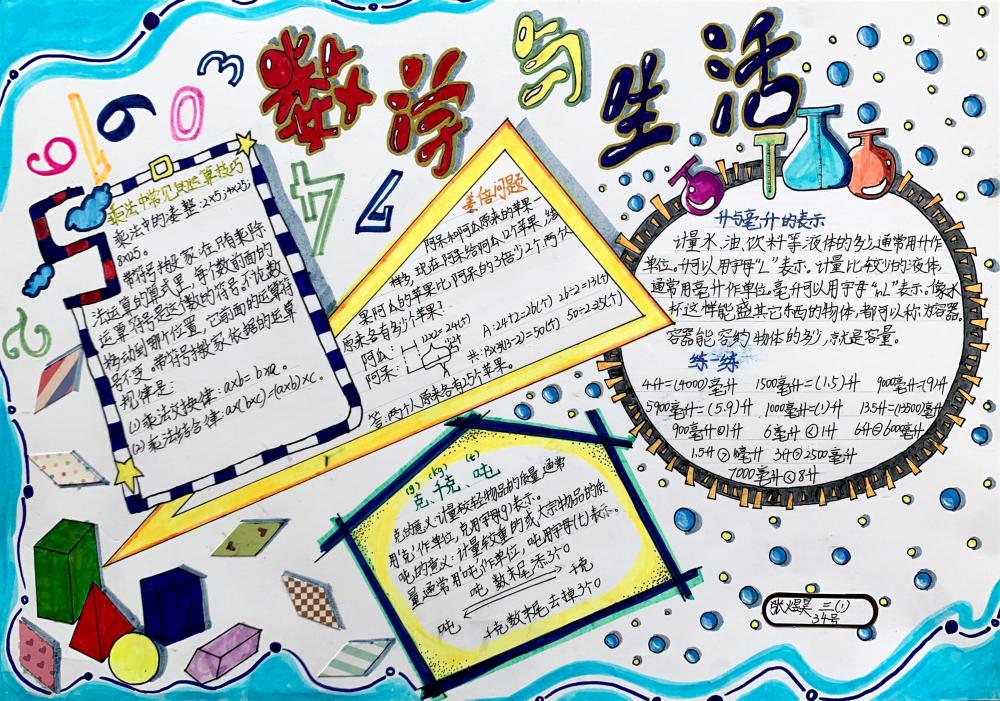 数学与生活
3
0
6
1
9
2
4
7
乘法中常见的运算技巧
乘法中的凑整:2×5;4×25;
8×125.
带符号搬家:在只有乘除
法运算的算式里,每个数前面的
运算符号是这个数的符号.不论数
移动到哪个位置,它前面的运算符
号不变.带符号搬家依据的运算
规律是:
(1)乘法交换律:a×b=b×a.
(2)乘法结合律:a×(b×c)=(a×b)×c.
差倍问题
阿呆和阿瓜原来的苹果一
样多,现在阿呆给阿瓜12个苹果,结
果阿瓜的苹果比阿呆的3倍少2个,两人
原来各有多少个苹果?
阿瓜:
阿呆:
12×2=24(个)
A:24+2=26(个) 26÷2=13(个)
共:13×3-2=50(个) 50÷2=25(个)
答:两个人原来各有25个苹果.
升与毫升的表示
计量水、油、饮料等液体的多少,通常用升作
单位.升可以用字母“L”表示.计量比较少的液体,
通常用毫升作单位.毫升可以用字母“mL”表示.像水
杯这样能盛其它东西的物体,都可以称为容器.
容器能容纳物体的多少,就是容量.
练一练
4升=(4000)毫升 1500毫升=(1.5)升 9000毫升=(9)升
5900毫升=(5.9)升 1000毫升=(1)升 13.5升=(13500)毫升
900毫升<1升 6毫升<1升 6升>600毫升
3升>2500毫升
7000毫升<8升
(g) (kg) (t)
克、千克、吨
克的意义:计量较轻物品的质量,通常
用“克”作单位,克用字母(g)表示.
吨的意义:计量较重的或大宗物品的质
量,通常用“吨”作单位,吨用字母(t)表示.
吨 数末尾添3个0 千克
吨 千克数末尾去掉3个0
三(1)
34号